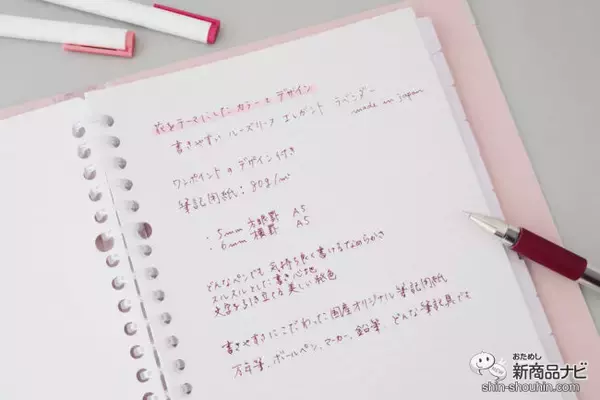 花をテーマにしたカラーとデザイン
書きやすい ルーズリーフ エレガント ラベンダー
made in Japan
ワンポイントのデザイン付き
筆記用紙：80g/m²
：5mm 方眼罫 A5
：6mm 横罫 A5
どんなペンでも気持ち良く書けるなめらかさ
スルスルとした書き心地
文字を引き立てる美しい紙色
書きやすさにこだわった国産オリジナル筆記用紙
万年筆、ボールペン、マーカー、鉛筆、どんな筆記具でも
おためし
新商品ナビ
shin-shouhin.com